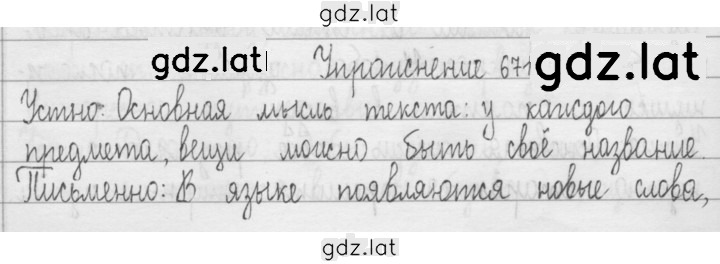 gdz.lat
gdz.lat
Упражнение 671
gdz.lat
Устно. Основная мысль текста: у каждого
предмета, вещи можно быть своё название.
Письменно: В языке появляются новые слова,
gdz.lat